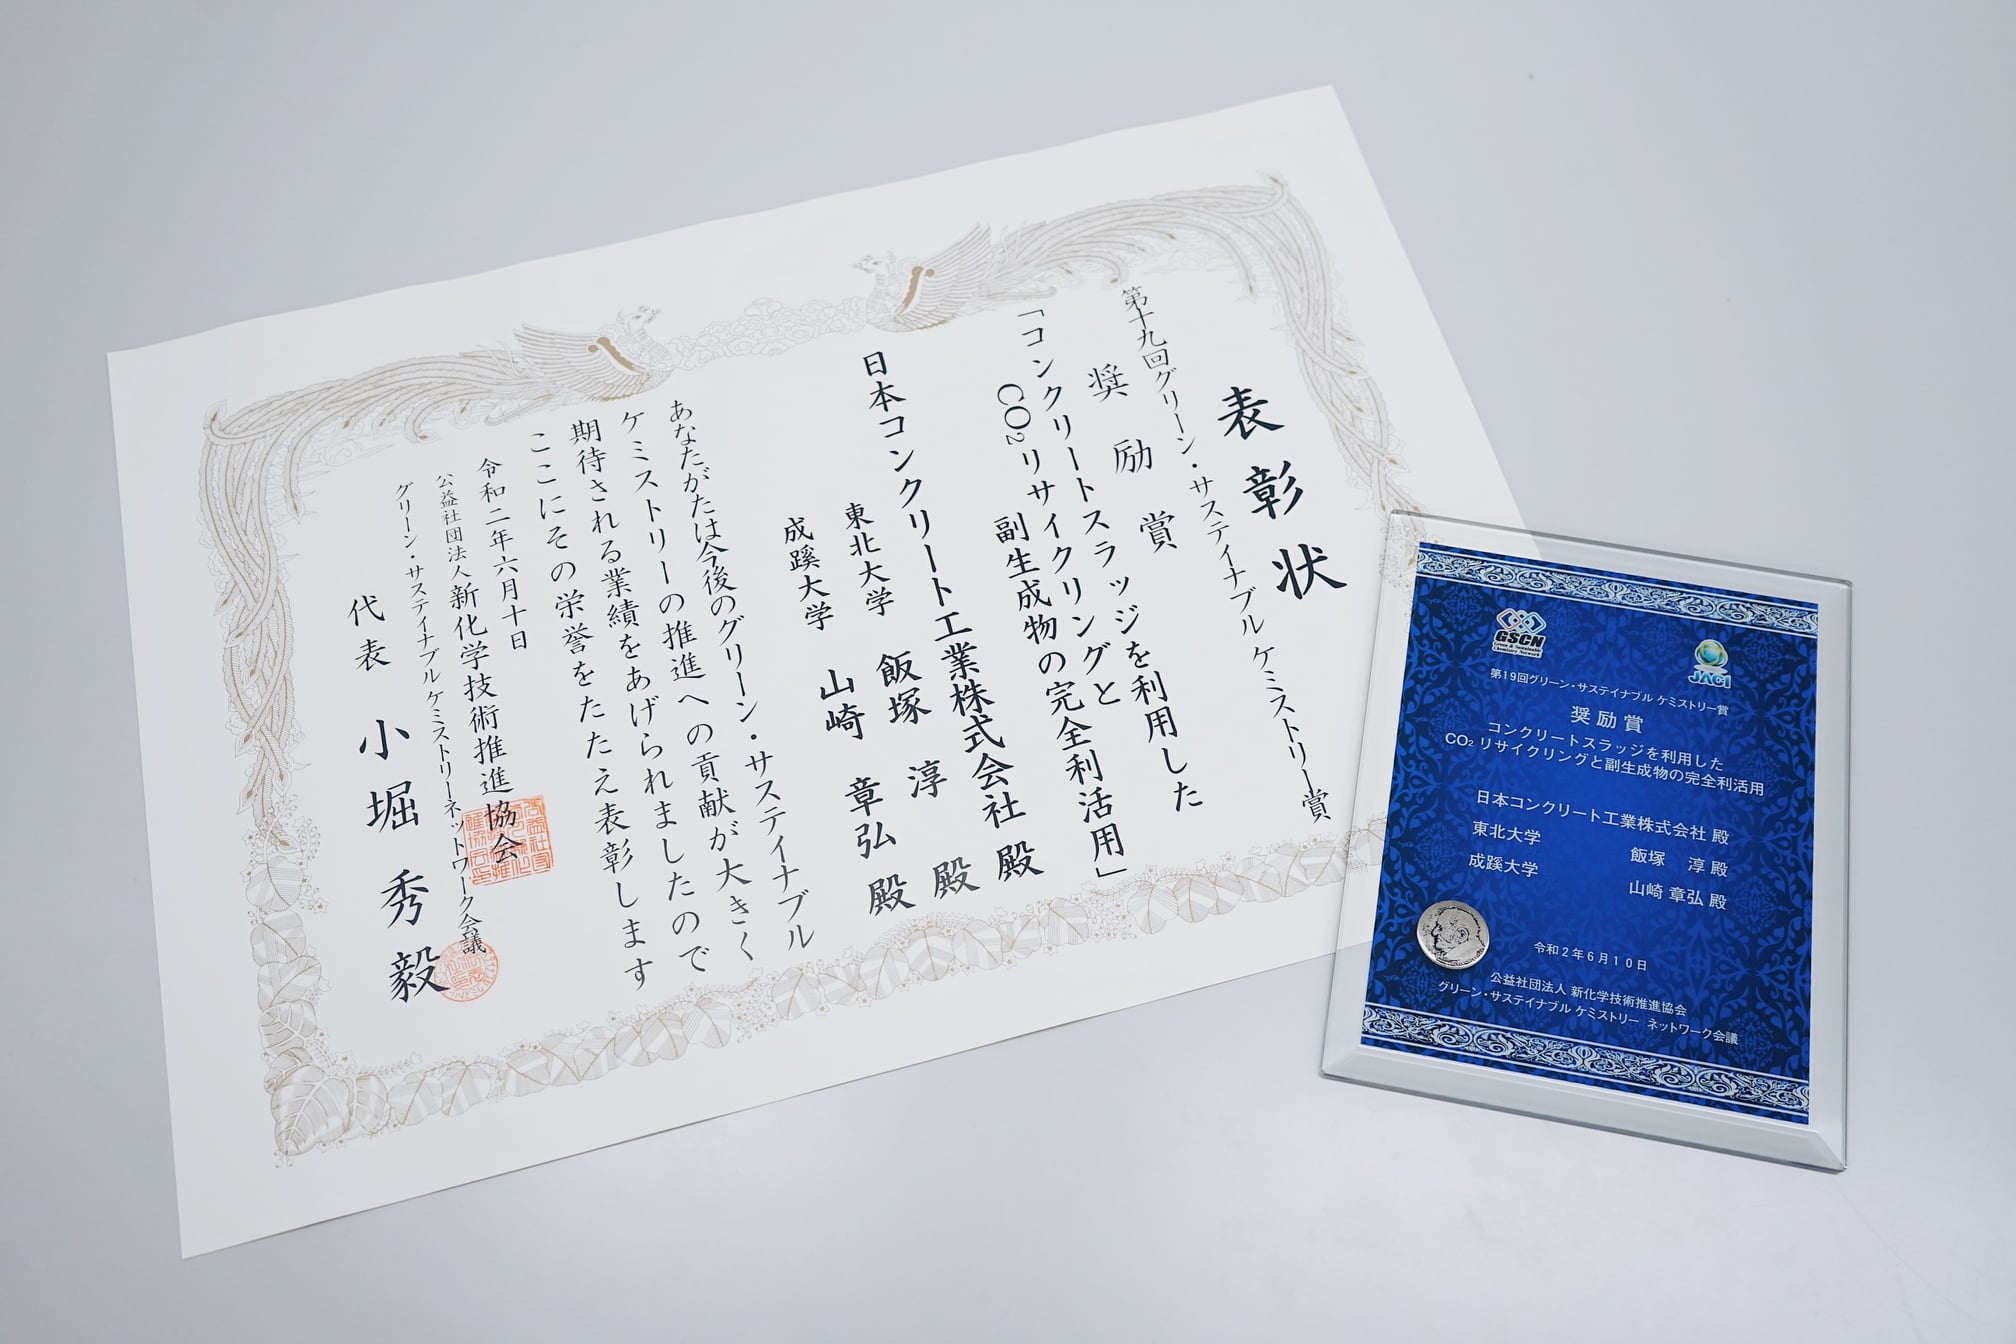 表彰状
第十九回グリーン・サステイナブル ケミストリー賞
奨励賞
「コンクリートスラッジを利用した
CO₂リサイクリングと
副生成物の完全利活用」
日本コンクリート工業株式会社 殿
東北大学 飯塚 淳 殿
成蹊大学 山崎 章弘 殿
あなたがたは今後のグリーン・サステイナブル
ケミストリーの推進への貢献が大きく
期待される業績をあげられましたので
ここにその栄誉をたたえ表彰します
令和二年六月十日
公益社団法人新化学技術推進協会
グリーン・サステイナブル ケミストリー ネットワーク会議
代表 小堀秀毅
GSCN
Green & Sustainable
Chemistry Network
JACI
第19回グリーン・サステイナブル ケミストリー賞
奨励賞
コンクリートスラッジを利用した
CO₂ リサイクリングと副生成物の完全利活用
日本コンクリート工業株式会社 殿
東北大学 飯塚 淳 殿
成蹊大学 山崎 章弘 殿
令和2年6月10日
公益社団法人 新化学技術推進協会
グリーン・サステイナブル ケミストリー ネットワーク会議